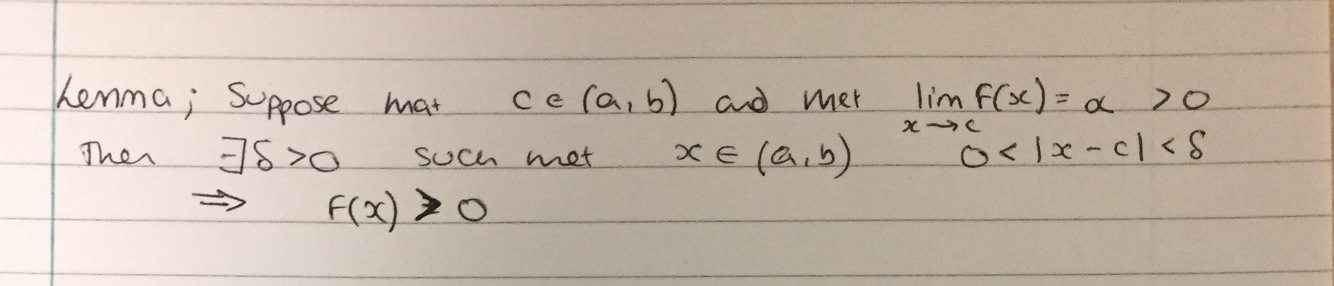 Lemma; Suppose that c ∈ (a, b) and that lim f(x) = α > 0
x→c
Then ∃δ>0 such that x ∈ (a, b) 0 < |x - c| < δ
⇒ f(x) > 0